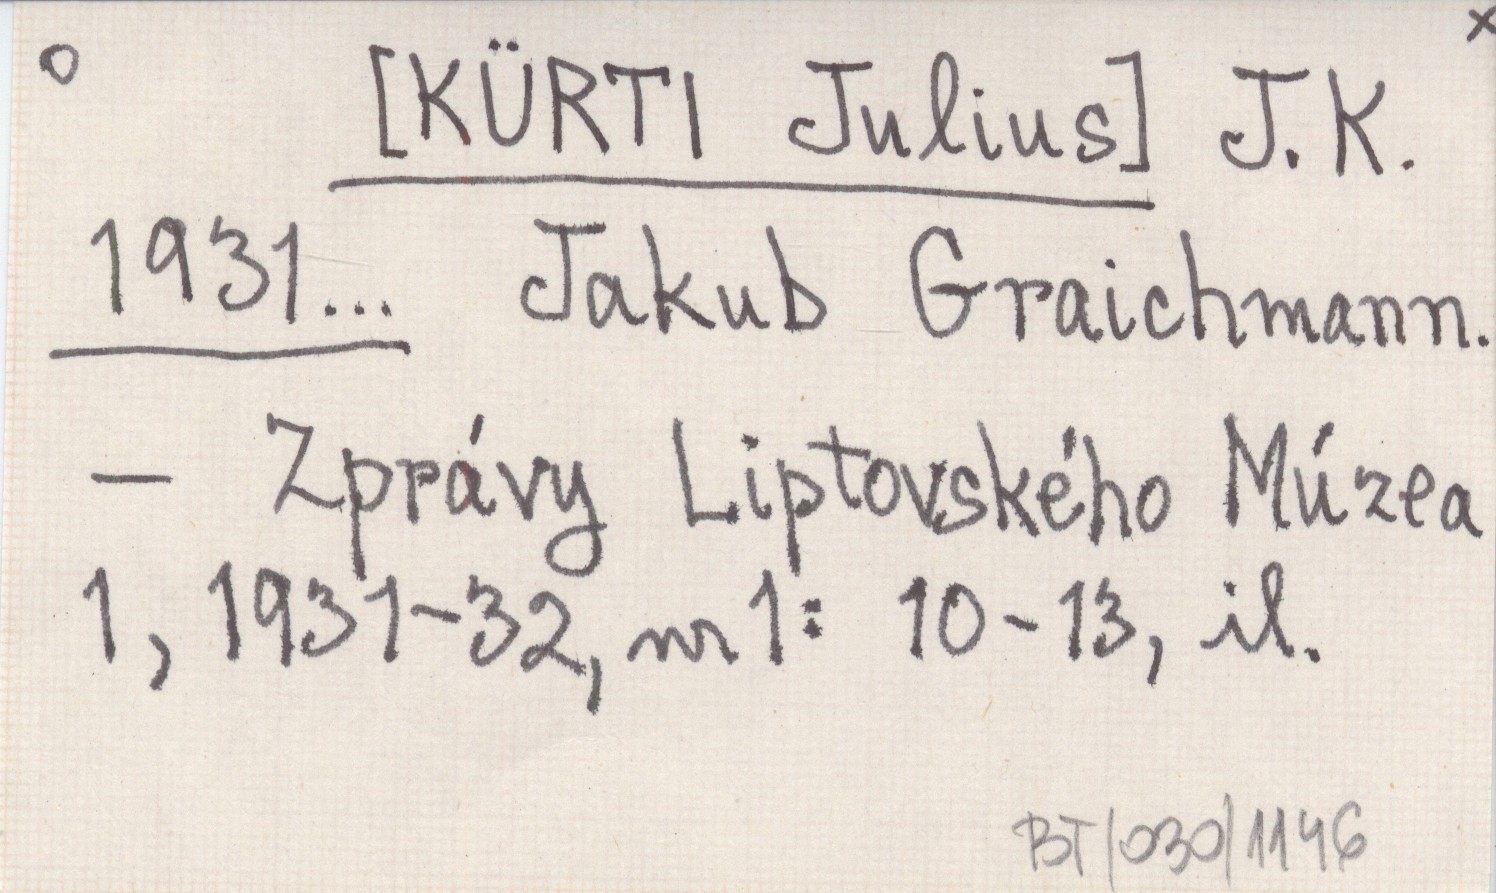 o [KÜRTI Julius] J.K. x
1931... Jakub Graichmann.
— Zprávy Liptovského Múzea
1, 1931-32, nr 1: 10-13, il.
BT/030/1146